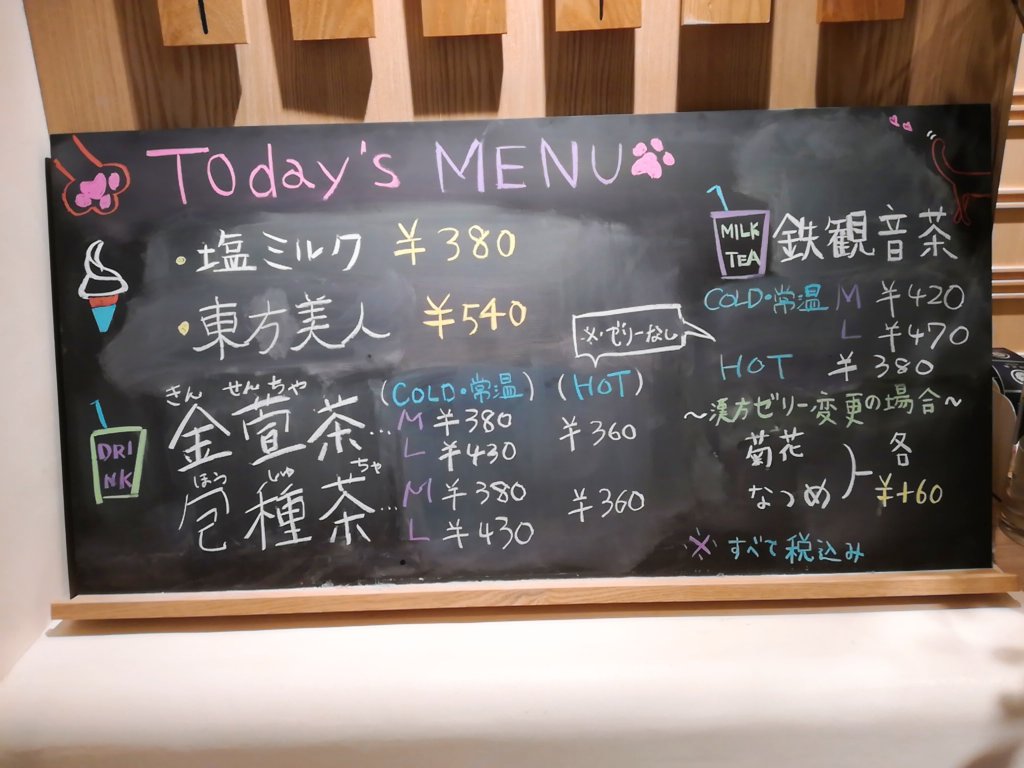 Today's MENU
・塩ミルク ¥380
・東方美人 ¥540
DRINK
(COLD・常温) (HOT)
きん せんちゃ
金萱茶… M ¥380 ¥360
L ¥430
ほう しゅ ちゃ
包種茶… M ¥380 ¥360
L ¥430
※・ゼリーなし
MILK TEA 鉄観音茶
COLD・常温 M ¥420
L ¥470
HOT ¥380
〜漢方ゼリー変更の場合〜
菊花
なつめ
各
¥+60
※すべて税込み